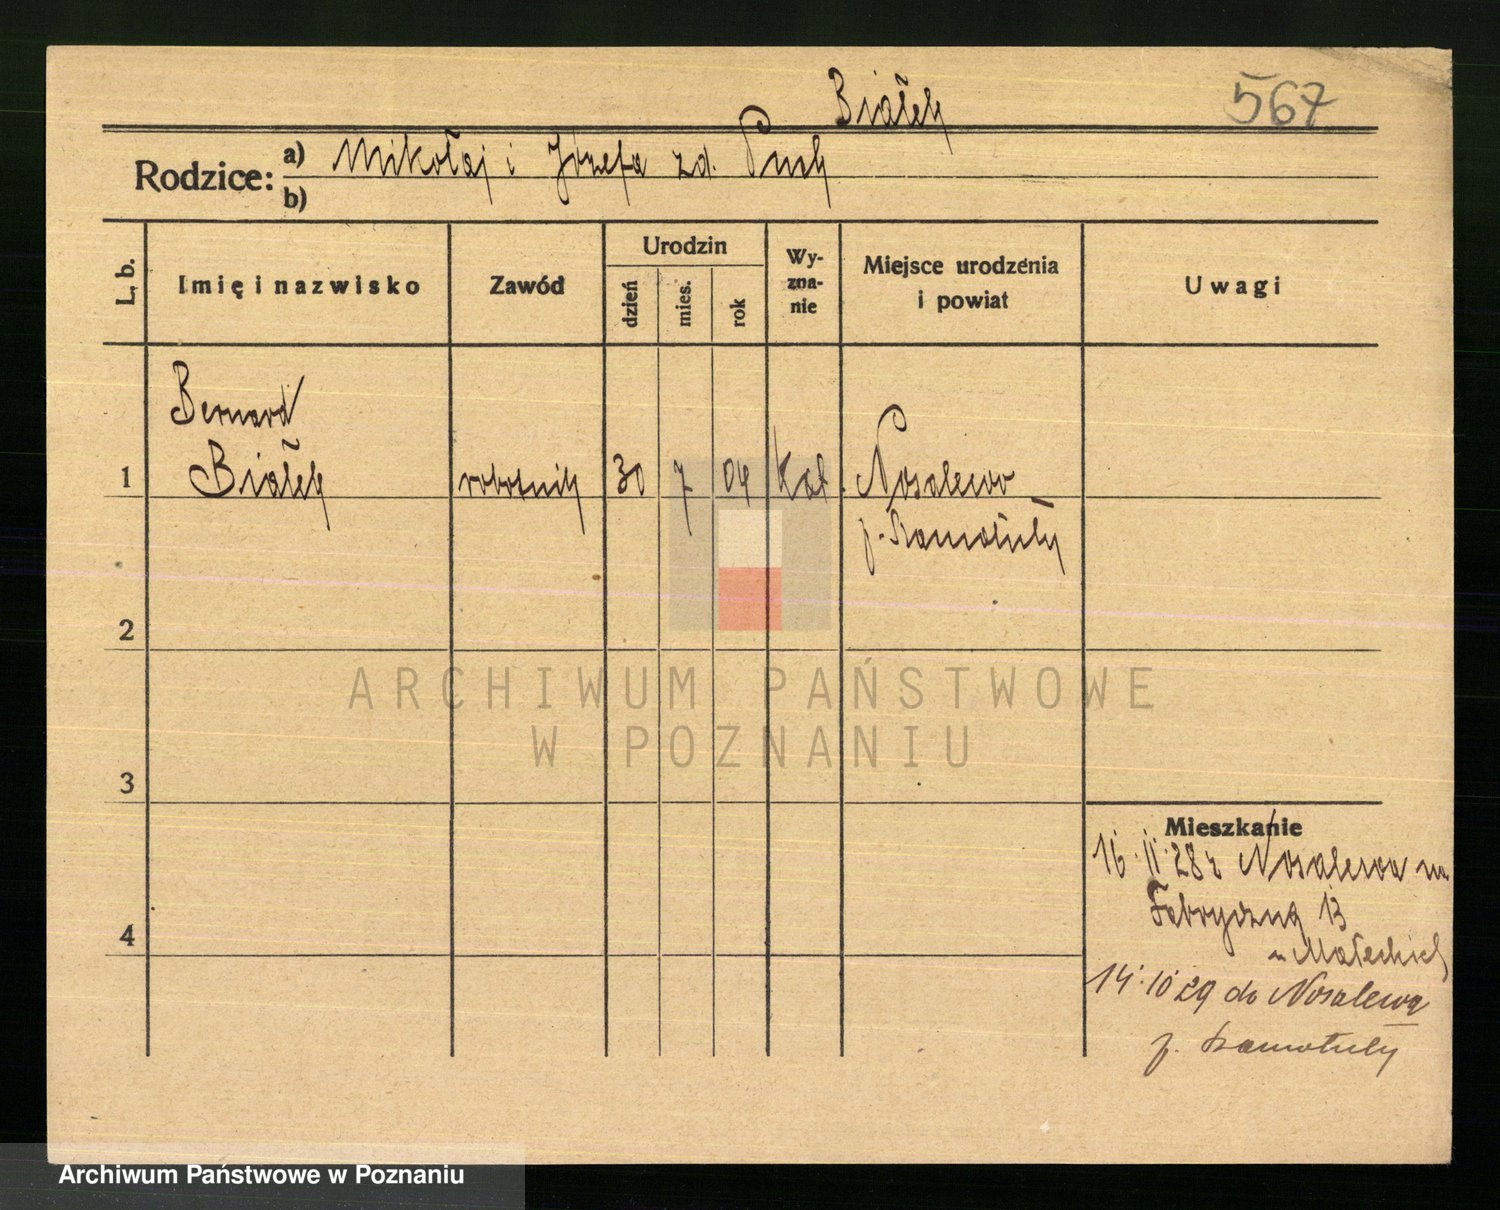 Białek
567
Rodzice: a) Mikołaj i Józefa zd. Puch
b)
L. b.
Imię i nazwisko
Zawód
Urodzin
dzień
mies.
rok
Wy-
zna-
nie
Miejsce urodzenia
i powiat
Uwagi
Bernard
1 Białek robotnik 30 7 04 Kat. Nosalewo
p. Szamotuły
2
3
4
Mieszkanie
16.11.28 z Nosalewa na
Fabryczną 13
u Małeckich
14.10 29 do Nosalewa
p. Szamotuły
ARCHIWUM PAŃSTWOWE
W POZNANIU
Archiwum Państwowe w Poznaniu